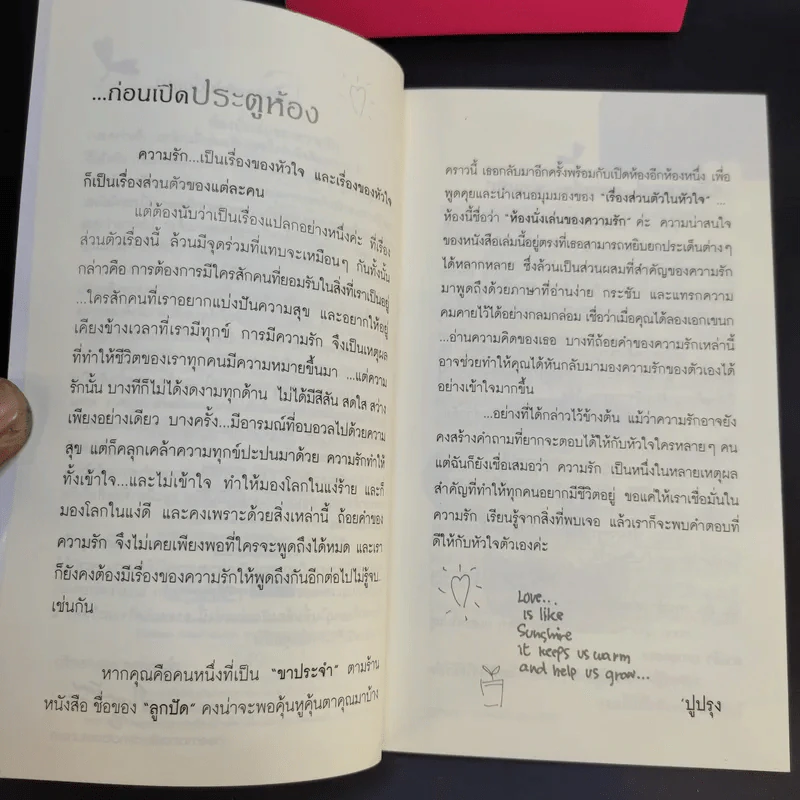 ...ก่อนเปิดประตูห้อง
ความรัก...เป็นเรื่องของหัวใจ และเรื่องของหัวใจ
ก็เป็นเรื่องส่วนตัวของแต่ละคน
แต่ต้องนับว่าเป็นเรื่องแปลกอย่างหนึ่งค่ะ ที่เรื่อง
ส่วนตัวเรื่องนี้ ล้วนมีจุดร่วมที่แทบจะเหมือนๆ กันทั้งนั้น
กล่าวคือ การต้องการมีใครสักคนที่ยอมรับในสิ่งที่เราเป็นอยู่
...ใครสักคนที่เราอยากแบ่งปันความสุข และอยากให้อยู่
เคียงข้างเวลาที่เรามีทุกข์ การมีความรัก จึงเป็นเหตุผล
ที่ทำให้ชีวิตของเราทุกคนมีความหมายขึ้นมา ...แต่ความ
รักนั้น บางทีก็ไม่ได้งดงามทุกด้าน ไม่ได้มีสีสัน สดใส สว่าง
เพียงอย่างเดียว บางครั้ง...มีอารมณ์ที่อบอวลไปด้วยความ
สุข แต่ก็คลุกเคล้าความทุกข์ปะปนมาด้วย ความรักทำให้
ทั้งเข้าใจ...และไม่เข้าใจ ทำให้มองโลกในแง่ร้าย และก็
มองโลกในแง่ดี และคงเพราะด้วยสิ่งเหล่านี้ ถ้อยคำของ
ความรัก จึงไม่เคยเพียงพอที่ใครจะพูดถึงได้หมด และเรา
ก็ยังคงต้องมีเรื่องของความรักให้พูดถึงกันอีกต่อไปไม่รู้จบ...
เช่นกัน
หากคุณคือคนหนึ่งที่เป็น "ขาประจำ" ตามร้าน
หนังสือ ชื่อของ "ลูกปัด" คงน่าจะพอคุ้นหูคุ้นตาคุณมาบ้าง
คราวนี้ เธอกลับมาอีกครั้งพร้อมกับเปิดห้องอีกห้องหนึ่ง เพื่อ
พูดคุยและนำเสนอมุมมองของ "เรื่องส่วนตัวในหัวใจ" ...
ห้องนี้ชื่อว่า "ห้องนั่งเล่นของความรัก" ค่ะ ความน่าสนใจ
ของหนังสือเล่มนี้อยู่ตรงที่เธอสามารถหยิบยกประเด็นต่างๆ
ได้หลากหลาย ซึ่งล้วนเป็นส่วนผสมที่สำคัญของความรัก
มาพูดถึงด้วยภาษาที่อ่านง่าย กระชับ และแทรกความ
คมคายไว้ได้อย่างกลมกล่อม เชื่อว่าเมื่อคุณได้ลองเอกเขนก
...อ่านความคิดของเธอ บางทีถ้อยคำของความรักเหล่านี้
อาจช่วยทำให้คุณได้หันกลับมามองความรักของตัวเองได้
อย่างเข้าใจมากขึ้น
...อย่างที่ได้กล่าวไว้ข้างต้น แม้ว่าความรักอาจยัง
คงสร้างคำถามที่ยากจะตอบได้ให้กับหัวใจใครหลายๆ คน
แต่ฉันก็ยังเชื่อเสมอว่า ความรัก เป็นหนึ่งในหลายเหตุผล
สำคัญที่ทำให้ทุกคนอยากมีชีวิตอยู่ ขอแค่ให้เราเชื่อมั่นใน
ความรัก เรียนรู้จากสิ่งที่พบเจอ แล้วเราก็จะพบคำตอบที่
ดีให้กับหัวใจตัวเองค่ะ
Love...
is like
Sunshine
it keeps us warm
and help us grow...
'ปูปรุง